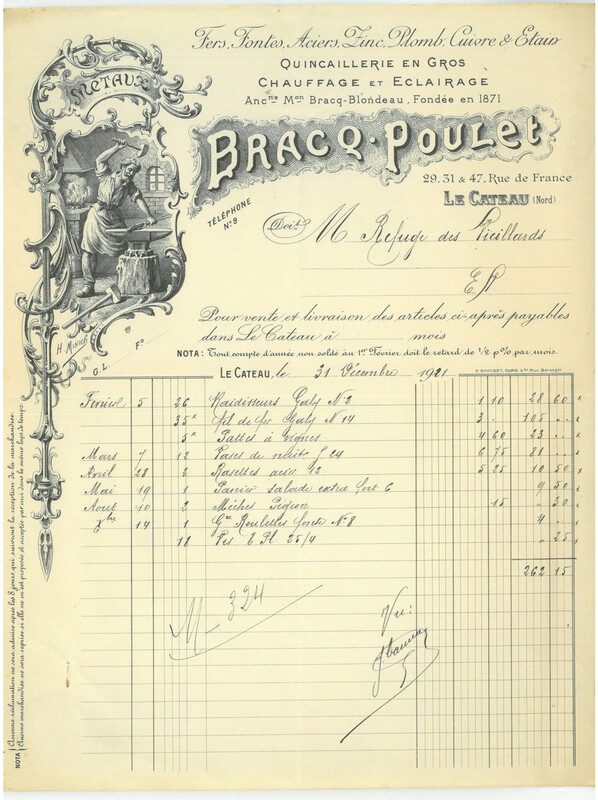 Fers, Fontes, Aciers, Zinc, Plomb, Cuivre & Etain
QUINCAILLERIE EN GROS
CHAUFFAGE ET ECLAIRAGE
Anc.ne Mon Bracq-Blondeau, Fondée en 1871
METAUX
BRACQ-POULET
29, 31 & 47, Rue de France
LE CATEAU (Nord)
TÉLÉPHONE
N° 9
Doit M Refuge des Vieillards
EV
Pour vente et livraison des articles ci-après payables
dans Le Cateau à mois
H. MINICH
G. L. F°
NOTA: Tout compte d'année non soldé au 1er Février doit le retard de ½ p% par mois.
LE CATEAU, le 31 Décembre 1921
Février 5 26 Raidisseurs Galv N° 2 1 10 28 60
35 K fil de fer Galv N 14 3 . 105 ..
5 K Pattes à vignes 4 60 23 ..
Mars 7 12 Vases de nuits 24 6 75 81 ..
Avril 28 2 2 5 25 10 50
Mai 19 1 Panier salade extra fort 6 9 50
Aout 10 2 Mèches Pigeon 15 " 30
Xbre 14 1 Roulettes fonte N° 8 4 ..
18 25/4 " 25
262 15
M 324
Vu:
NOTA
Aucune réclamation ne sera admise après les 8 jours qui suivront la réception de la marchandise.
Aucune marchandise ne sera reprise si elle ne m'est proposée et acceptée par moi dans le même laps de temps.